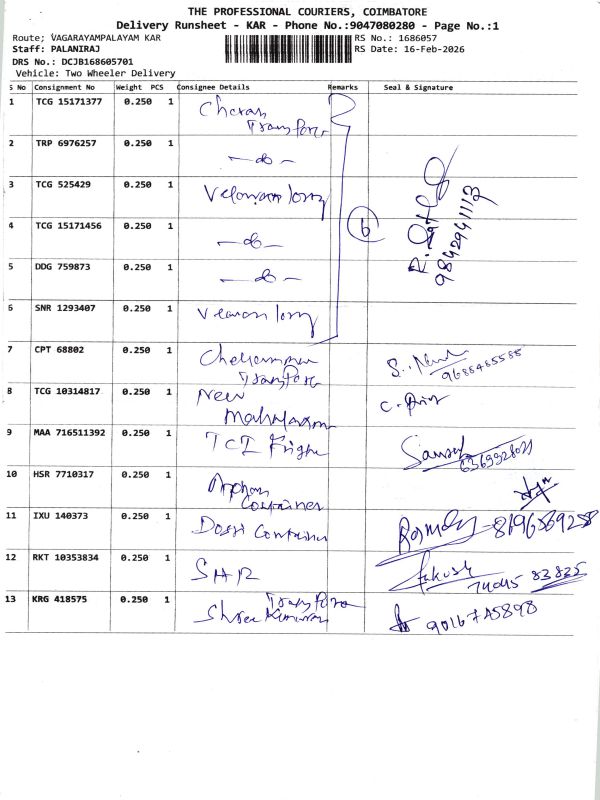 THE PROFESSIONAL COURIERS, COIMBATORE
Delivery Runsheet - KAR - Phone No.:9047080280 - Page No.:1
Route; VAGARAYAMPALAYAM KAR RS No.: 1686057
Staff: PALANIRAJ RS Date: 16-Feb-2026
DRS No.: DCJB168605701
Vehicle: Two Wheeler Delivery
S No Consignment No Weight PCS Consignee Details Remarks Seal & Signature
1 TCG 15171377 0.250 1 Cheran
Transport
2 TRP 6976257 0.250 1 —do—
3 TCG 525429 0.250 1 lorry
4 TCG 15171456 0.250 1 —do— 6
9842941113
5 DDG 759873 0.250 1 —do—
6 SNR 1293407 0.250 1 lorry
7 CPT 68802 0.250 1
Transport 9688465585
8 TCG 10314817 0.250 1 New C.
9 MAA 716511392 0.250 1 TCI
10 HSR 7710317 0.250 1
Container
11 IXU 140373 0.250 1 Container 8196569258
12 RKT 10353834 0.250 1 74045 83825
13 KRG 418575 0.250 1 Transport
Shree 90167 45898